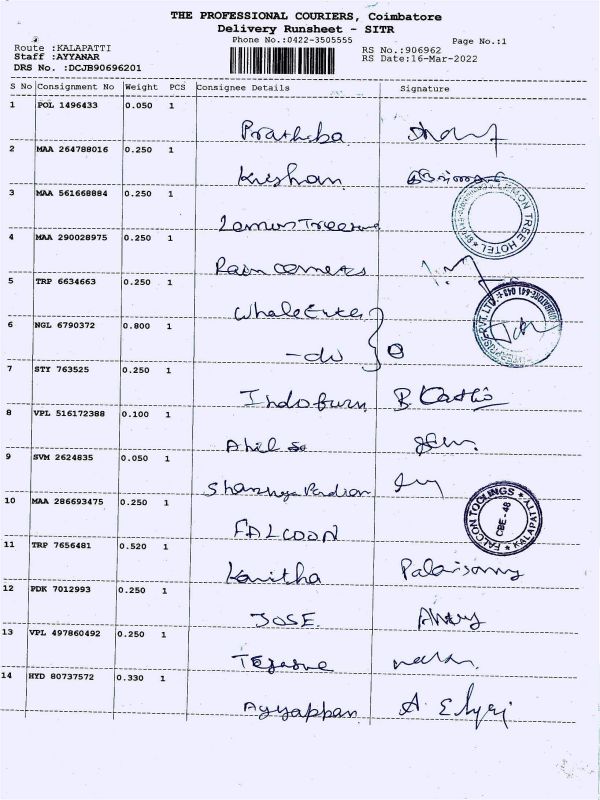 THE PROFESSIONAL COURIERS, Coimbatore
Delivery Runsheet - SITR
Phone No.:0422-3505555
Page No.:1
Route :KALAPATTI
RS No.:906962
Staff :AYYANAR
RS Date:16-Mar-2022
DRS No. :DCJB90696201
S No Consignment No Weight PCS Consignee Details Signature
1 POL 1496433 0.050 1
Prathiba
2 MAA 264788016 0.250 1
Kishan
3 MAA 561668884 0.250 1
Lemon Tree
LEMON TREE HOTEL
4 MAA 290028975 0.250 1
Rain
5 TRP 6634663 0.250 1
Whale
6 NGL 6790372 0.800 1
-do
7 STY 763525 0.250 1
Indofurn
8 VPL 516172388 0.100 1
Ahil
9 SVM 2624835 0.050 1
10 MAA 286693475 0.250 1
FALCOON
FALCON TOOLINGS
CBE-48
KALAPATTY
11 TRP 7656481 0.520 1
Kavitha Palanisamy
12 PDK 7012993 0.250 1
JOSE
13 VPL 497860492 0.250 1
14 HYD 80737572 0.330 1
Ayyappan